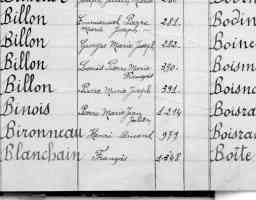 Billon Emmanuel Pierre Marie Joseph 281. Bodin
Billon Georges Marie Joseph 282. Boine
Billon Louis Pierre Marie François 390. Boism
Billon Pierre Marie Joseph 391. Boisn
Binois Pierre Marie Jean Julien 1.214 Boisra
Bironneau Henri 979 Boisra
Blanchain François 1.348 Boîte